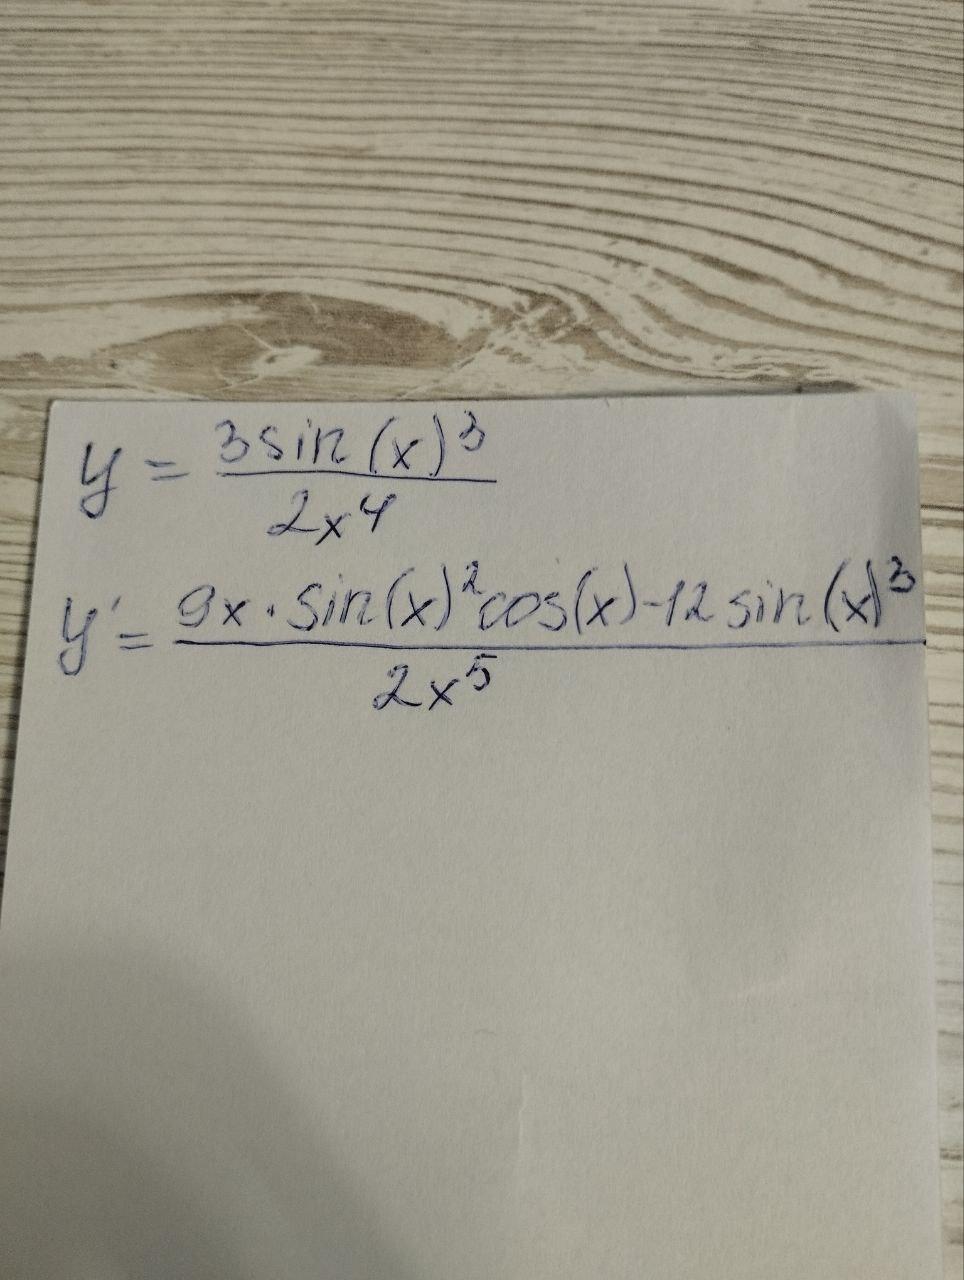 y = 3 sin (x)^3 / 2x^4
y' = 9x · sin(x)^2 cos(x) - 12 sin (x)^3 / 2x^5